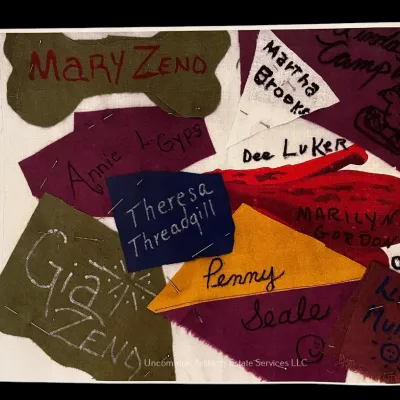 MARY ZENO
Martha
Brooks
Annie L Gyps
Dee LUKER
Theresa
Threadgill
MARILYN
GORDON
Gia
ZENO
Penny
Seale
Uncommon
Estate Services LLC